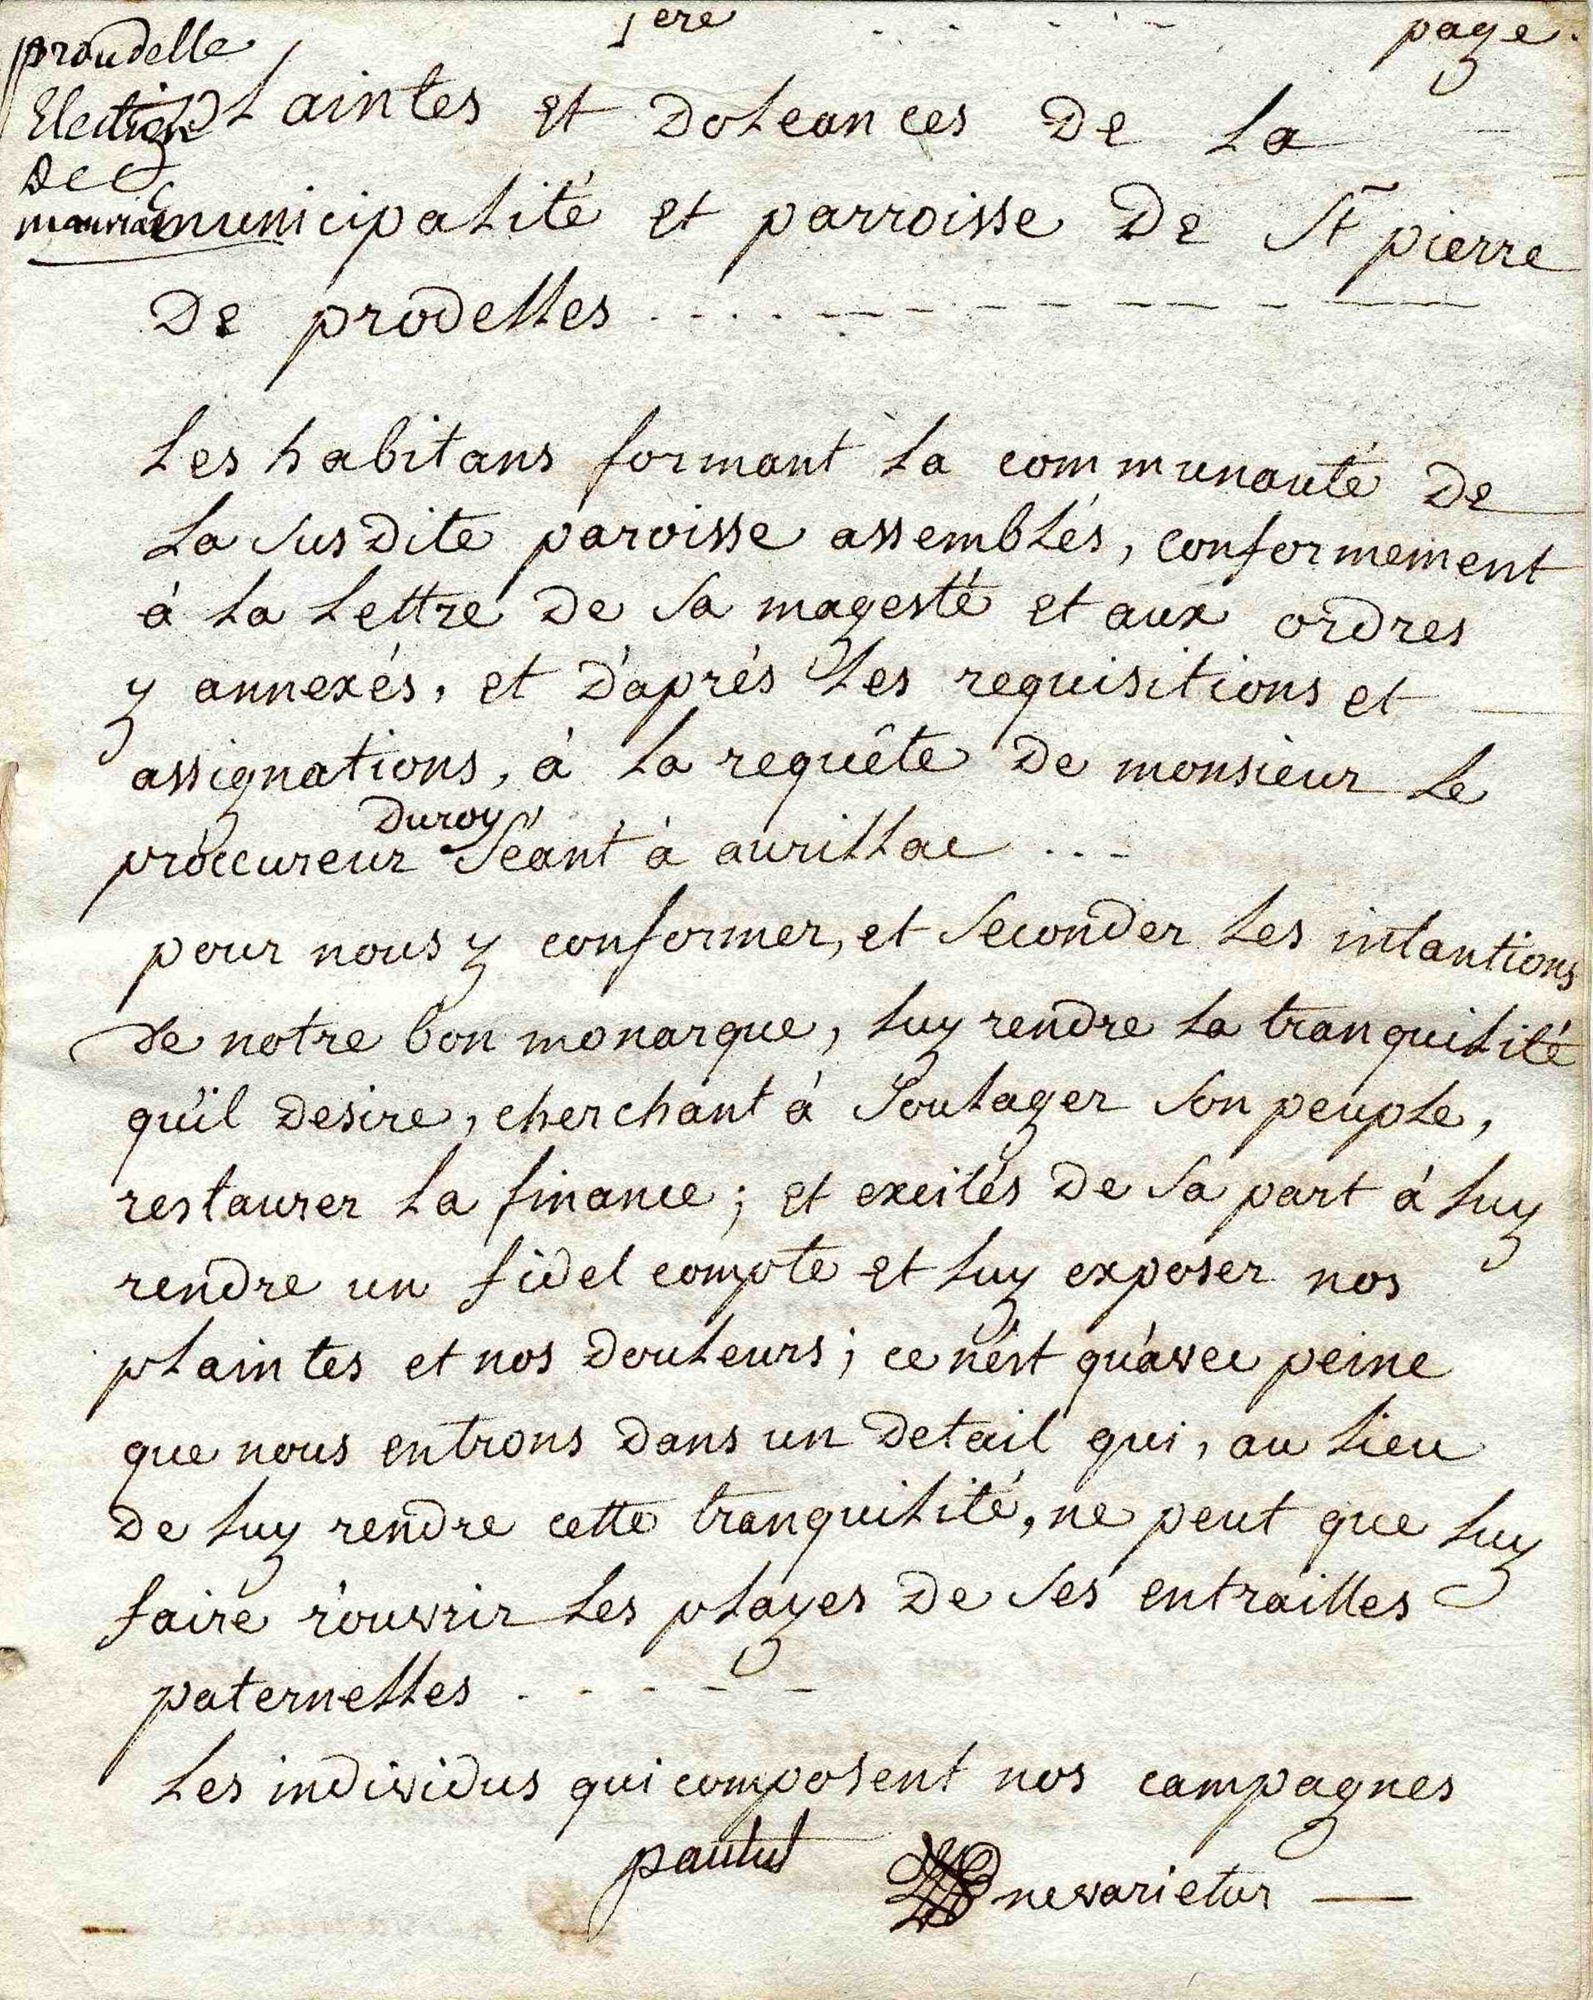 1ere . . . . - page.
proudelle
Election
de
mauriac
Plaintes et doleances de la
municipalité et parroisse de St pierre
de prodelles
Les habitans formant la communauté de
la susdite paroisse assemblés, conformement
à la lettre de sa magesté et aux ordres
y annexés, et d'aprés les requisitions et
assignations, à la requête de monsieur le
duroy
proccureur séant à aurillac ...
pour nous y conformer, et seconder les intantions
de notre bon monarque, luy rendre la tranquilité
qu'il desire, cherchant à soulager son peuple,
restaurer la finance; et excités de sa part à luy
rendre un fidel compte et luy exposer nos
plaintes et nos douleurs; ce n'est qu'avec peine
que nous entrons dans un detail qui, au lieu
de luy rendre cette tranquilité, ne peut que luy
faire r'ouvrir les playes de ses entrailles
paternelles . - - - -
Les individus qui composent nos campagnes
pautut
nevarietur —